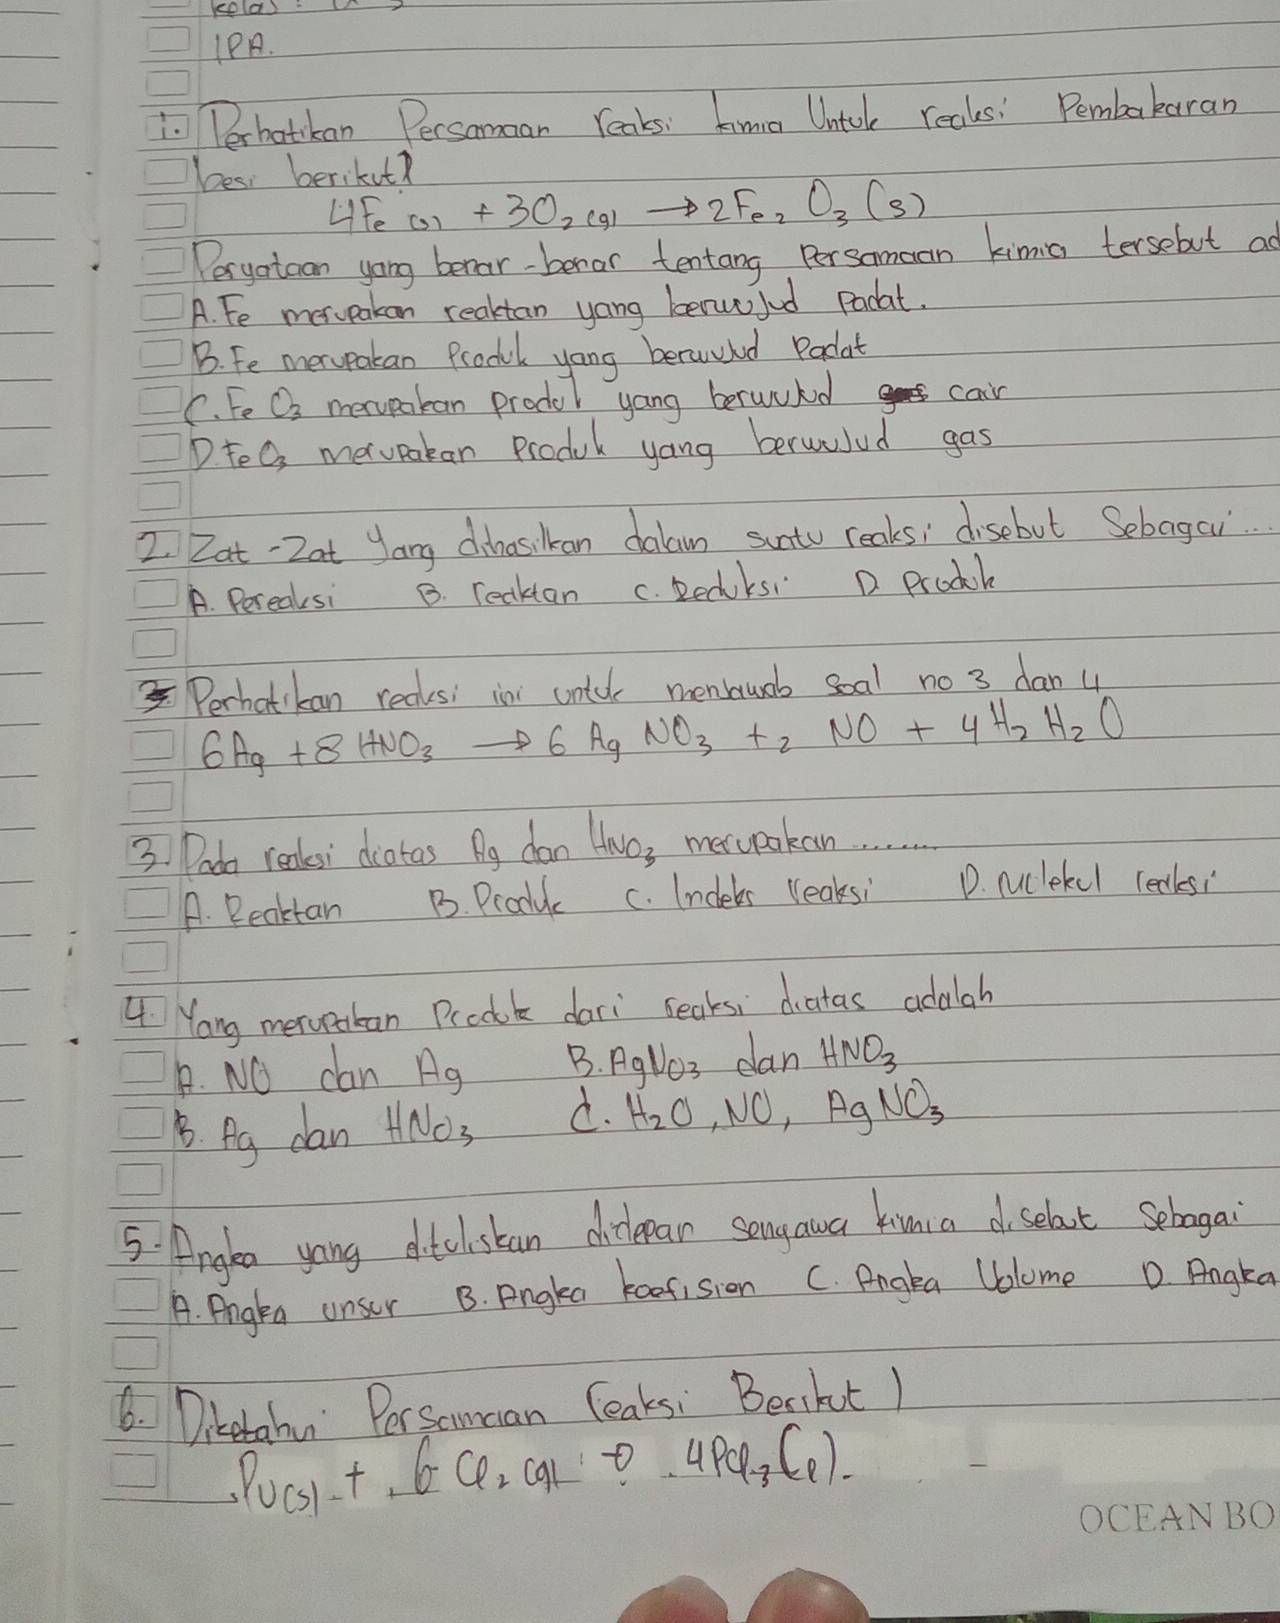 kelas :
IPA.
1. Perhatikan Persamaan reaksi kimia Untuk reaksi Pembakaran
besi berikut?
4Fe (s) + 3O₂ (g) → 2Fe₂ O₃ (s)
Peryataan yang benar-benar tentang Persamaan kimia tersebut ad
A. Fe merupakan reaktan yang berwujud Padat.
B. Fe merupakan Produk yang berwujud Padat
C. Fe O₃ merupakan produk yang berwujud cair
D. Fe O₃ merupakan Produk yang berwujud gas
2. Zat-Zat Yang dihasilkan dalam suatu reaksi disebut Sebagai...
A. Pereaksi B. reaktan C. Reduksi D. Produk
Perhatikan reaksi ini untuk menjawab soal no 3 dan 4
6Ag + 8 HNO₃ → 6 Ag NO₃ + ₂ NO + 4 H₂ H₂O
3. Pada reaksi diatas Ag dan HNO₃ merupakan ........
A. Reaktan B. Produk C. Indeks reaksi D. Molekul reaksi
4. Yang merupakan Produk dari reaksi diatas adalah
A. NO dan Ag B. AgNO₃ dan HNO₃
B. Ag dan HNO₃ d. H₂O, NO, AgNO₃
5. Angka yang dituliskan didepan sengawa kimia disebut Sebagai
A. Angka unsur B. Angka koefision C. Angka Volume D. Angka
6. Diketahui Persamaan reaksi Berikut)
+ 6 Cl₂ (g) 4PCl₃ (l).
OCEAN BO